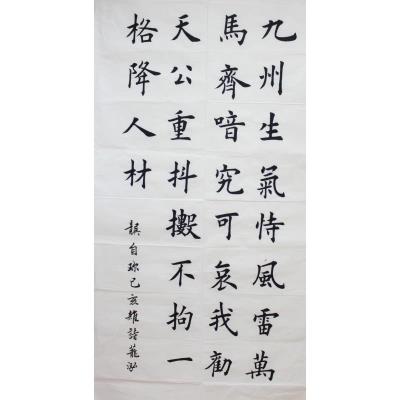 九州生氣恃風雷萬
馬齊喑究可哀我勸
天公重抖擻不拘一
格降人材
龔自珍己亥雜詩